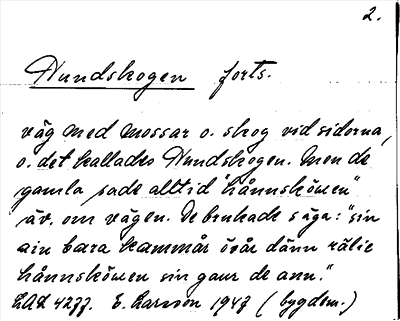 2.
Hundskogen forts.
väg med mossar o. skog vid siderna,
o. det kallades Hundskogen. Men de
gamla sade alltid "hånnsköuen"
äv. om vägen. De brukade säga: "sin
ain bara kammår övår dänn rälie
hånnsköuen sin gaur de ann."
LAL 4277. E. Larsson 1947 (bygdem.)